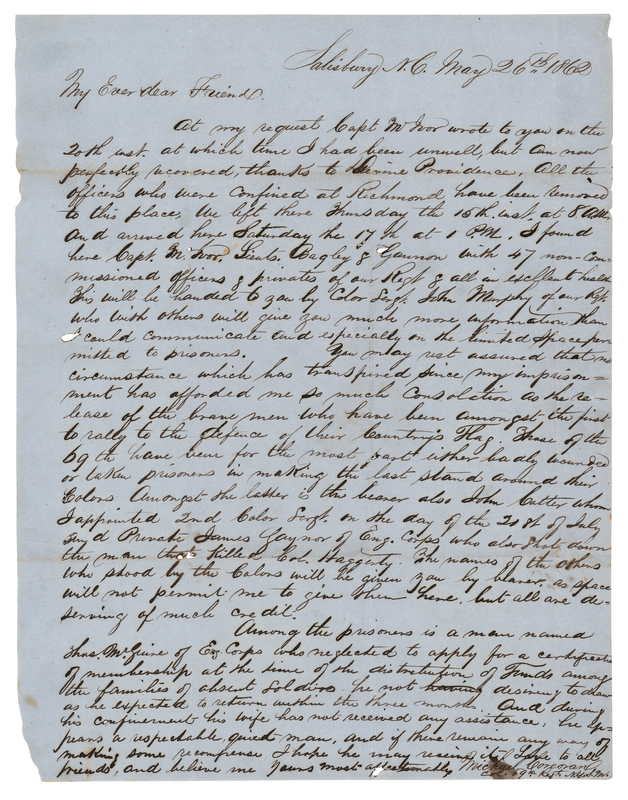 Salisbury N.C. May 26th 1862
My Ever dear Friend.
At my request Capt McIvor wrote to you on the
20th inst. at which time I had been unwell, but am now
perfectly recovered, thanks to Divine Providence. All the
officers who were confined at Richmond have been removed
to this place, We left there Thursday the 15th inst. at 8 AM
and arrived here Saturday the 17th at 1 P.M. I found
here Capt. McIvor, Lieuts. Bagley & Gannon with 47 non-com-
missioned officers & privates of our Regt & all in excellent health
This will be handed to you by Color Sergt. John Murphy of our Rgt.
who with others will give you much more information than
I could communicate and especially on the limited space per-
mitted to prisoners. You may rest assured that no
circumstance which has transpired since my imprison=
ment has afforded me so much consolation as the re-
lease of the brave men who have been amongst the first
to rally to the defence of their Country's Flag. Those of the
69th have been for the most part either badly wounded
or taken prisoners in making the last stand around their
Colors Amongst the latter is the bearer also John Cutter whom
I appointed 2nd Color Sergt. on the day of the 21st of July
and Private James Gaynor of Eng. Corps who also shot down
the man that killed Col. Haggerty. The names of the others
who stood by the Colors will be given you by bearer, as space
will not permit me to give them here, but all are de-
serving of much credit.
Among the prisoners is a man named
Thos. McGuire of Eng. Corps who neglected to apply for a certificate
of membership at the time of the distribution of Funds among
the families of absent Soldiers he not having desiring to draw
as he expected to return within the three months And during
his confinement his wife has not received any assistance; he ap-
pears a respectable, quiet man, and if there remain any way of
making some recompense I hope he may receive it. Love to all
friends, and believe me Yours most affectionately Michael Corcoran
Col. 69th Regt. N.Y.S.M.